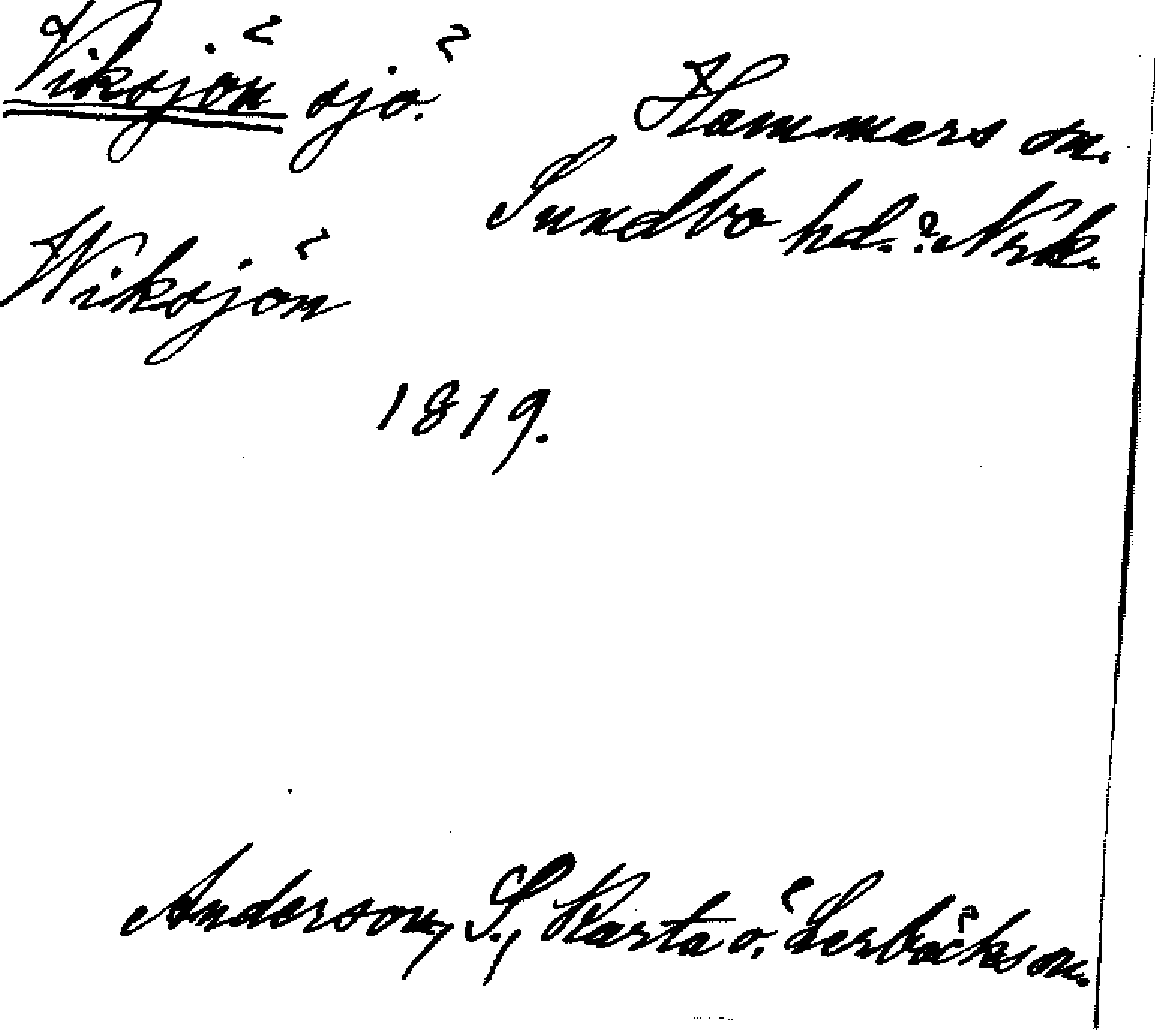 Viksjön sjö.
Hammers sn.
Sundbo hd. Nrk.
Wiksjön
1819.
Anderson, S., Karta ö. Lerbäcks sn.